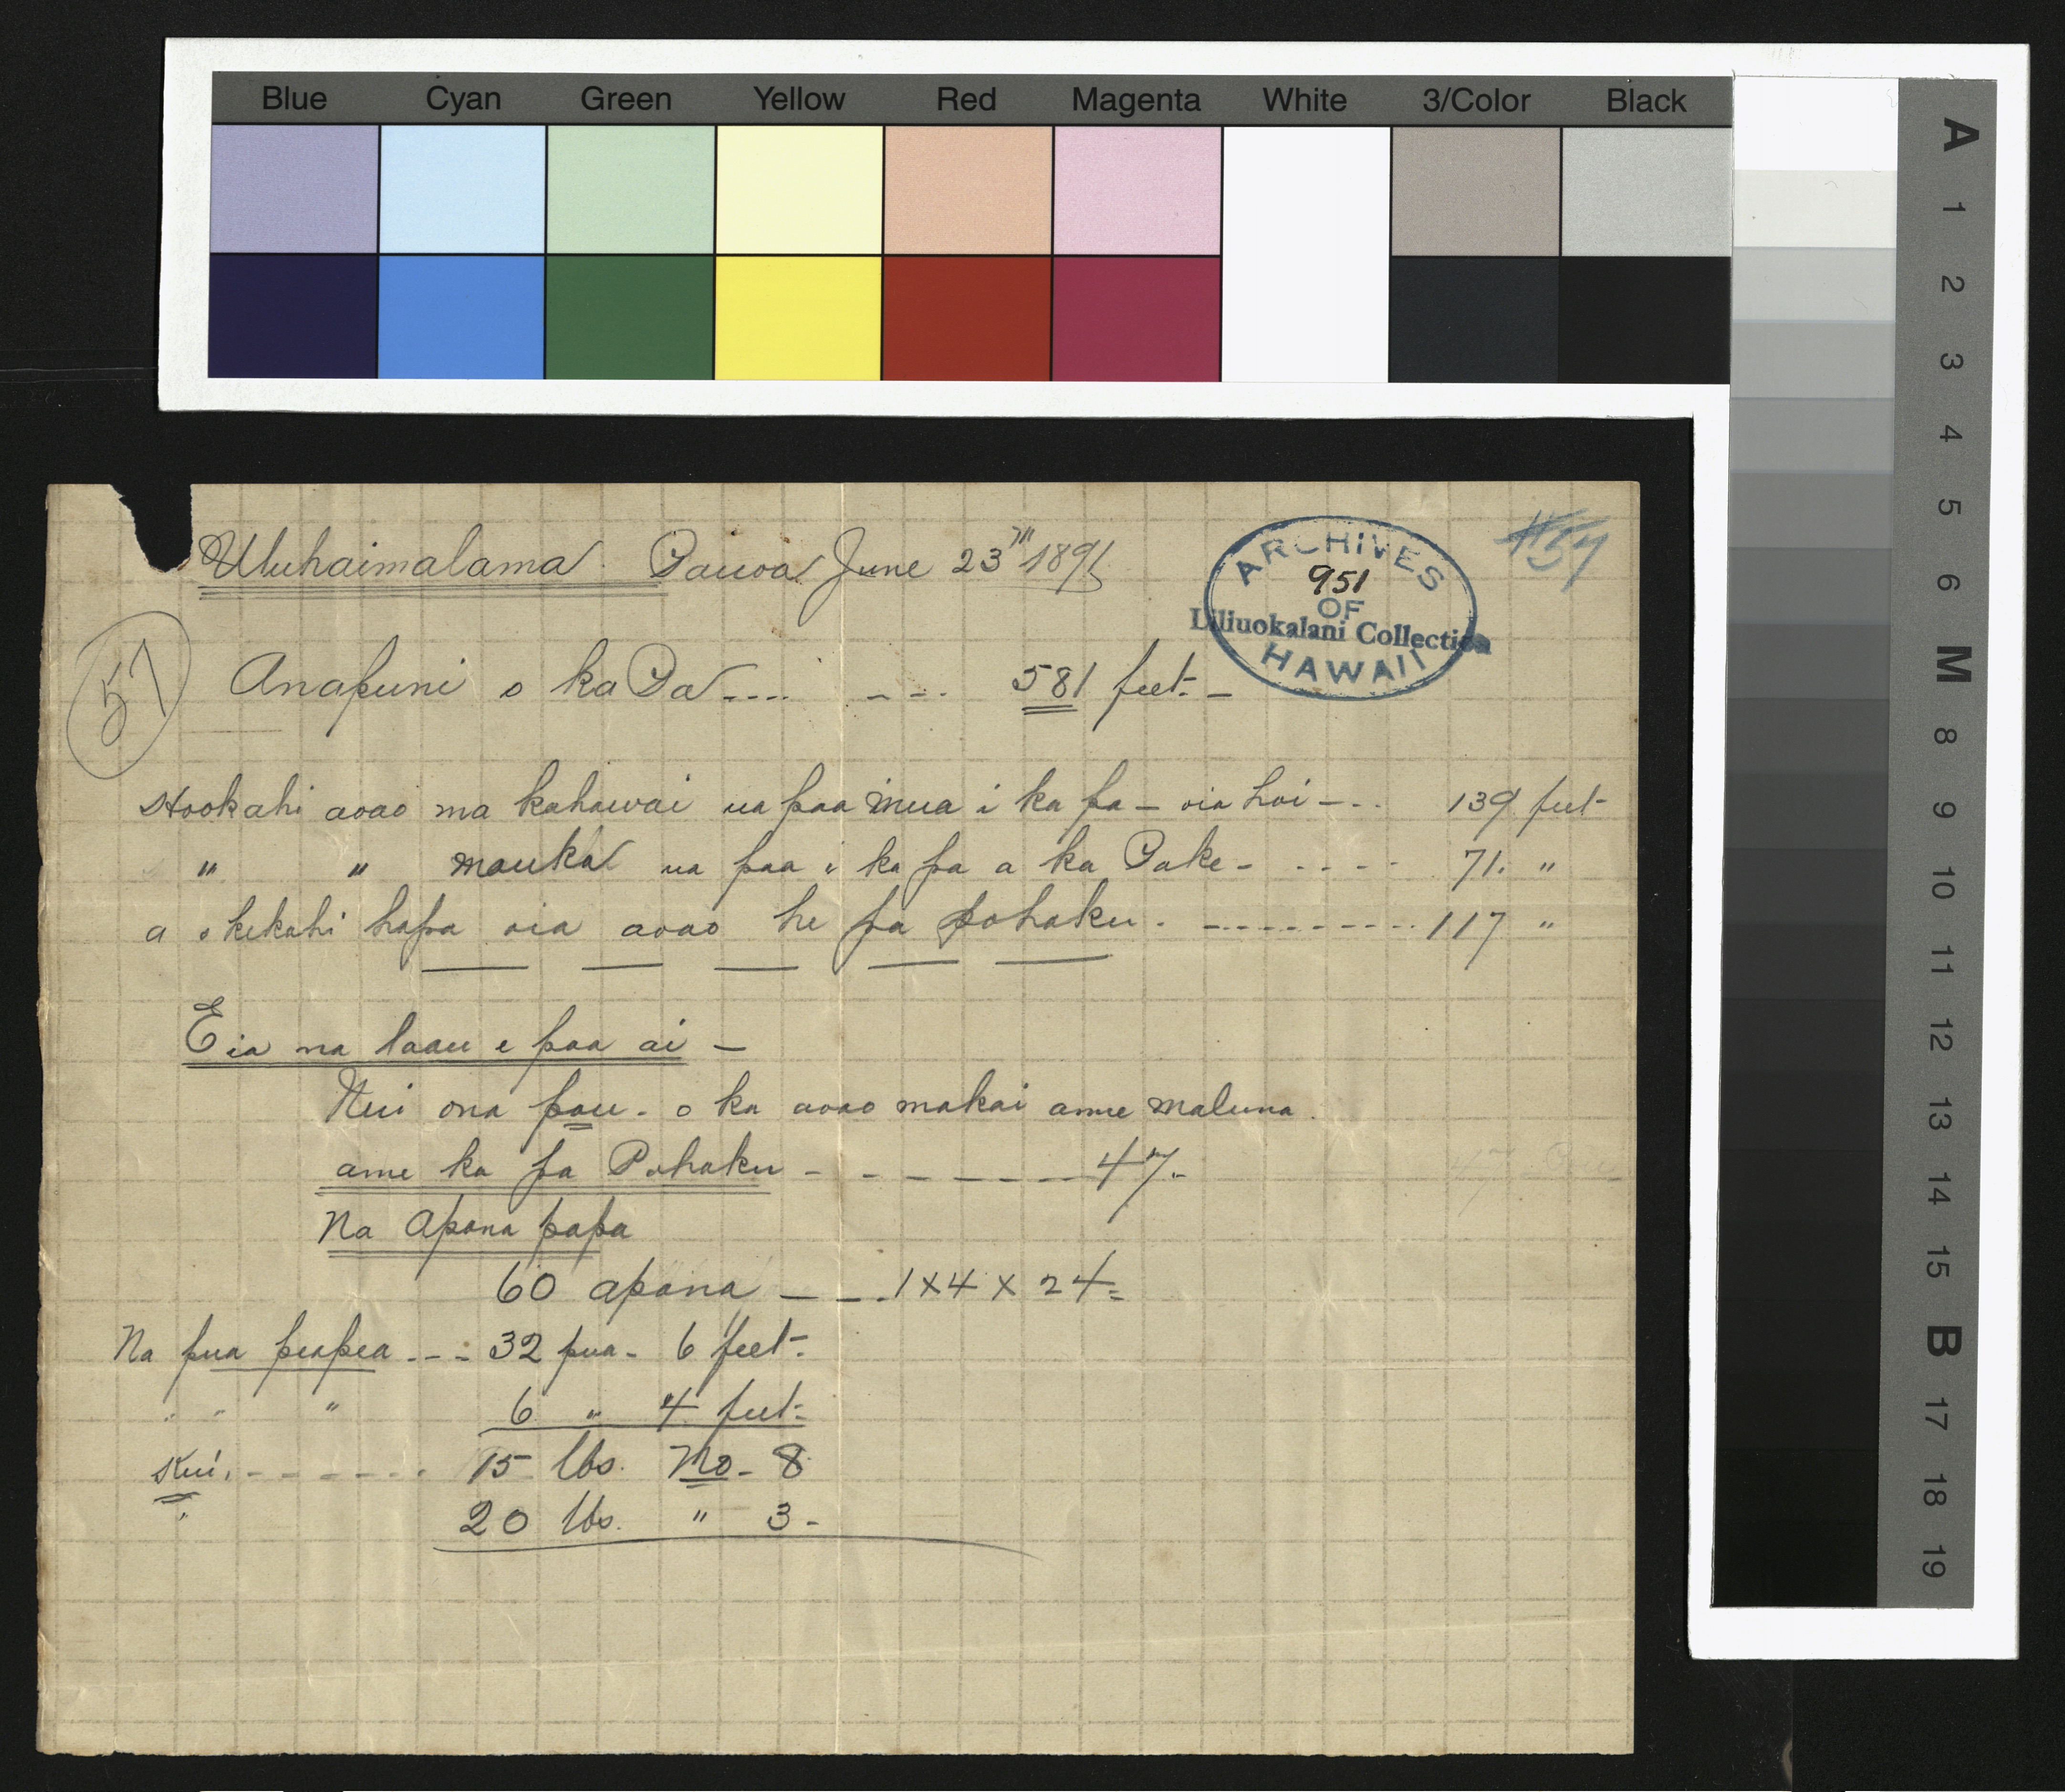 Blue Cyan Green Yellow Red Magenta White 3/Color Black
A 1 2 3 4 5 6 M 8 9 10 11 12 13 14 15 B 17 18 19
Uluhaimalama Pauoa June 23
ARCHIVES
951
OF
Liliuokalani Collection
HAWAII
#57
57
Anapuni o ka Pa .... - - - 581 feet. -
Hookahi aoao ma kahawai ua paa mua i ka pa - oia hoi - - . 139 feet
" " mauka ua paa i ka pa a ka Pake - - - - - 71. "
a o kekahi hapa oia aoao he pa pohaku . - - - - - - - - - 117 "
Eia na laau e paa ai -
Nui ona pou - o ka aoao makai ame maluna
ame ka pa Pohaku - - - - - - - 47.-
Na Apana papa
60 apana - - - 1 x 4 x 24=
Na pua peapea - - - 32 pua - 6 feet -
" " " 6 " 4 feet -
Kui. - - - - - - 15 lbs. No - 8
20 lbs. " 3 -